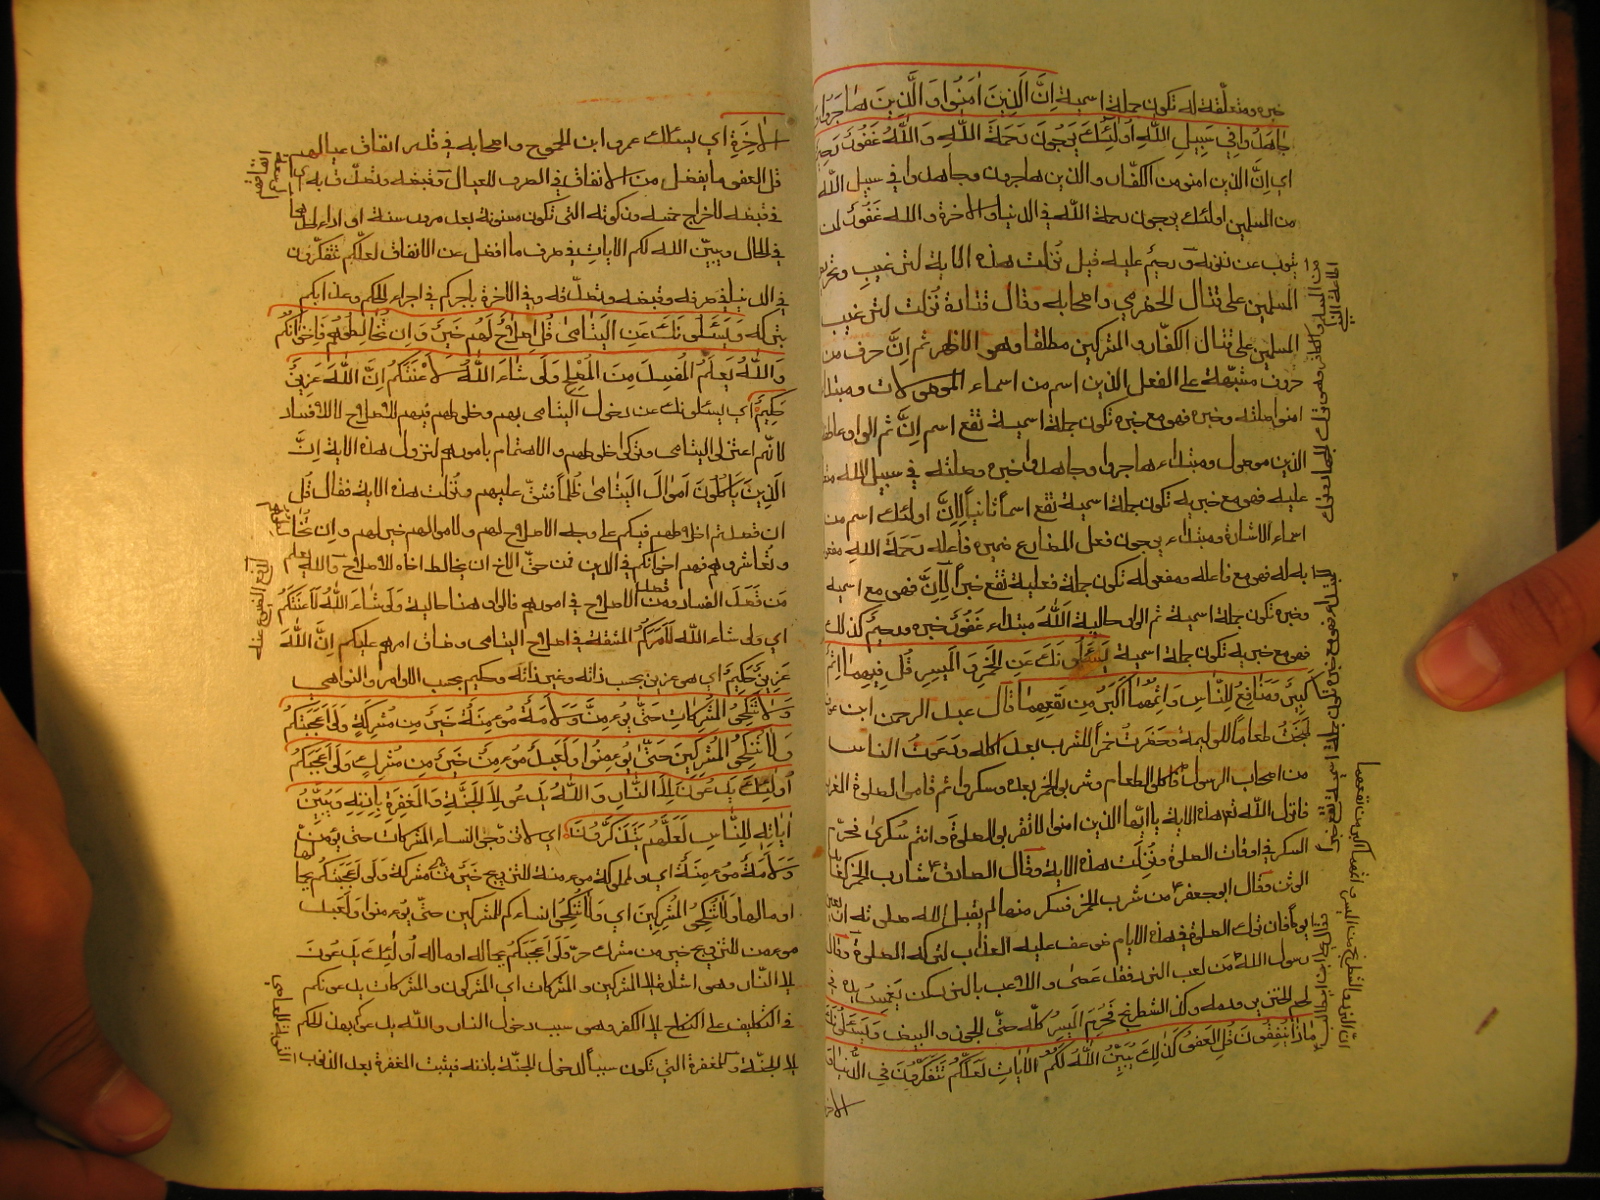 خبره ومتعلّقة له تكون جملة اسمية اِنَّ الَّذِينَ اٰمَنُوا وَالَّذِينَ هٰاجَرُوا
جٰاهَدُوا فِي سَبِيلِ اللّٰهِ أُولٰئِكَ يَرْجُونَ رَحْمَةَ اللّٰهِ وَاللّٰهُ غَفُورٌ رَحِيمٌ
اي اِنَّ الذين امنوا من الكفّار والذين هاجرون وجاهدوا في سبيل اللّه
من المسلمين اولئك يرجون رحمة اللّه في الدنيا والاخرة واللّه غَفُورٌ لمن
يتوب عن ذنوبه ورحيمٌ عليه قيل نُزلت هذه الاية لترغيب وتحر
المسلمين على قتال الحضرمي واصحابه وقال قتادة نُزلت لترغيب
المسلمين على قتال الكفّار والمشركين مطلقا وهو الاظهر ثم اِنَّ حرف من
حروف مشبّهة على الفعل الذين اسم من اسماء الموصولات ومبتداء
امنوا صلته وخبره فهو مع خبره تكون جملة اسمية تقع اسم اِنَّ ثم الواو عاطفة
الذين موصول ومبتداء هاجروا وجاهدوا خبره وصلته في سبيل اللّه متعلّق
عليه فهو مع خبريه تكون جملة اسمية تقع اسماً ثانياً لِاِنَّ اولئك اسم من
اسماء الاشارة ومبتداء يرجون فعل المضارع ضميره فاعله رَحْمَةَ اللّهِ مفعول
به له فهو مع فاعله ومفعوله تكون جملة فعلية تقع خبراً لِاِنَّ فهو مع اسميه
وخبره تكون جملة اسمية ثم الواو حالية اللّٰهُ مبتداء غَفُورٌ خبره ورحيمٌ كذلك
فهو مع خبريه تكون جملة اسمية يَسْئَلُونَكَ عَنِ الْخَمْرِ وَالْمَيْسِرِ قُلْ فِيهِمٰا اِثْمٌ
كَبِيرٌ وَمَنٰافِعُ لِلنّٰاسِ وَاِثْمُهُمٰا أَكْبَرُ مِنْ نَفْعِهِمٰا قال عبد الرحمن ابن عوف
طَبَخْتُ طعاماً للوليمة وحَضَرتُ خمراً للشرب بعد اكله ودَعَوتُ الناس
من اصحاب الرسول فاكلوا الطعام وشربوا الخمر بعده وسكروا ثم قاموا الصلوة المغرب
فانزل اللّه هذه الاية يا ايّها الذين امنوا لا تقربوا الصلوة وانتم سُكرى فحرّم
السكر في اوقات الصلوة ونُزلت هذه الاية وقال الصادق ع شارب الخمر كعابد
الوثن وقال ابو جعفر ع من شرب الخمر فسكر منها لم يقبل اللّه صلوته اربعين
يوماً فان ترك الصلوة في هذه الايام ضوعف عليه العذاب لتركه الصلوة وقال
رسول اللّه ص مَن لعب النرد فقد عصى واللاعب بالنرد كمن يَغمِسُ يده في
لحم الخنزير ودمه وكذا الشطرنج فحُرِّم الْمَيْسِر كلّه حتّى الجوز والبيض وَيَسْئَلُونَكَ
مٰاذٰا يُنْفِقُونَ قُلِ الْعَفْوَ كَذٰلِكَ يُبَيِّنُ اللّٰهُ لَكُمُ الْاٰيٰاتِ لَعَلَّكُمْ تَتَفَكَّرُونَ فِي الدُّنْيٰا وَ
الاخرة
الْاٰخِرَةِ اي يسئلك عمرو ابن الجموح واصحابه في قدر انفاق عيالهم
قل العفو ما يفضل من الانفاق في الصرف للعيال وقبضه وتصدّق به اي
في قبضه لاخراج خمسه وزكوته التي تكون مسنونة بعد مرور سنة او اداءها
في الحال ويبيّن اللّه لكم الايات في صرف ما افضل عن الانفاق لعلّكم تتفكّرون
في الدنيا في صرفه وقبضه وتصدّقه وفي الاخرة باجركم في اجراء الحكم وعذابكم
بتركه وَيَسْئَلُونَكَ عَنِ الْيَتٰامىٰ قُلْ اِصْلٰاحٌ لَهُمْ خَيْرٌ وَاِنْ تُخٰالِطُوهُمْ فَاِخْوٰانُكُمْ
وَاللّٰهُ يَعْلَمُ الْمُفْسِدَ مِنَ الْمُصْلِحِ وَلَوْ شٰاءَ اللّٰهُ لَاَعْنَتَكُمْ اِنَّ اللّٰهَ عَزِيزٌ
حَكِيمٌ اي يسئلونك عن دخول اليتامى بهم وخلطهم فيهم للاصلاح لا للافساد
لانّهم اعتزلوا اليتامى وتركوا خلطهم والاهتمام بامورهم لنزول هذه الاية اِنَّ
الَّذِينَ يَأْكُلُونَ اَمْوٰالَ الْيَتٰامىٰ ظُلْماً فشقّ عليهم ونُزلت هذه الاية فقال قُل
ان قصدتم اخلاطهم فيكم على وجه الاصلاح لهم ولاموالهم خير لهم واِن تُخٰا
وتُعاشروهم فهم اخوانكم في الدين فمن حقّ الاخ ان يخالط اخاه للاصلاح واللّه يعلم
مَن قصَدَ الفساد ومَن قصد الاصلاح في امورهم فالواو هنا حالية وَلَوْ شٰاءَ اللّٰهُ لَاَعْنَتَكُمْ
اي ولو شاء اللّه لَأمَرَكُم المشقة في اصلاح اليتامى وضاق امرهم عليكم اِنَّ اللّٰهَ
عَزِيزٌ حَكِيمٌ اي هو عزيز بحسب ذاته وغير ذاته وحكيم بحسب الاوامر والنواهي
وَلٰا تَنْكِحُوا الْمُشْرِكٰاتِ حَتّٰى يُؤْمِنَّ وَلَاَمَةٌ مُؤْمِنَةٌ خَيْرٌ مِنْ مُشْرِكَةٍ وَلَوْ اَعْجَبَتْكُمْ
وَلٰا تُنْكِحُوا الْمُشْرِكِينَ حَتّٰى يُؤْمِنُوا وَلَعَبْدٌ مُؤْمِنٌ خَيْرٌ مِنْ مُشْرِكٍ وَلَوْ اَعْجَبَكُمْ
أُولٰئِكَ يَدْعُونَ اِلَى النّٰارِ وَاللّٰهُ يَدْعُو اِلَى الْجَنَّةِ وَالْمَغْفِرَةِ بِاِذْنِهِ وَيُبَيِّنُ
اٰيٰاتِهِ لِلنّٰاسِ لَعَلَّهُمْ يَتَذَكَّرُونَ اي لا تزوّجوا النساء المشركات حتى يؤمنّ
وَلَاَمَةٌ مُؤْمِنَةٌ اي ولمملوكة مؤمنة للتزويج خيرٌ من مشركة ولو اَعجبتكم بجما
او مالها وَلٰا تُنْكِحُوا الْمُشْرِكِينَ اي وَلا تُنكحوا نساءكم للمشركين حتّى يؤمنوا وَلَعبد
مؤمن للتزويج خير من مشرك حرّ ولو اَعجَبَكُم بجماله او ماله أُولٰئِكَ يَدْعُونَ
اِلَى النّار وهو اشارة الى المشركين والمشركات اي المشركون والمشركات يدعونكم
في التكليف على النكاح الى الكفر وهو سبب دخول النار واللّه يدعو بهذا الحكم
الى الجنّة والمغفرة التي تكون سبباً لدخول الجنّة باذنه فيثبت المغفرة بعد الذنب